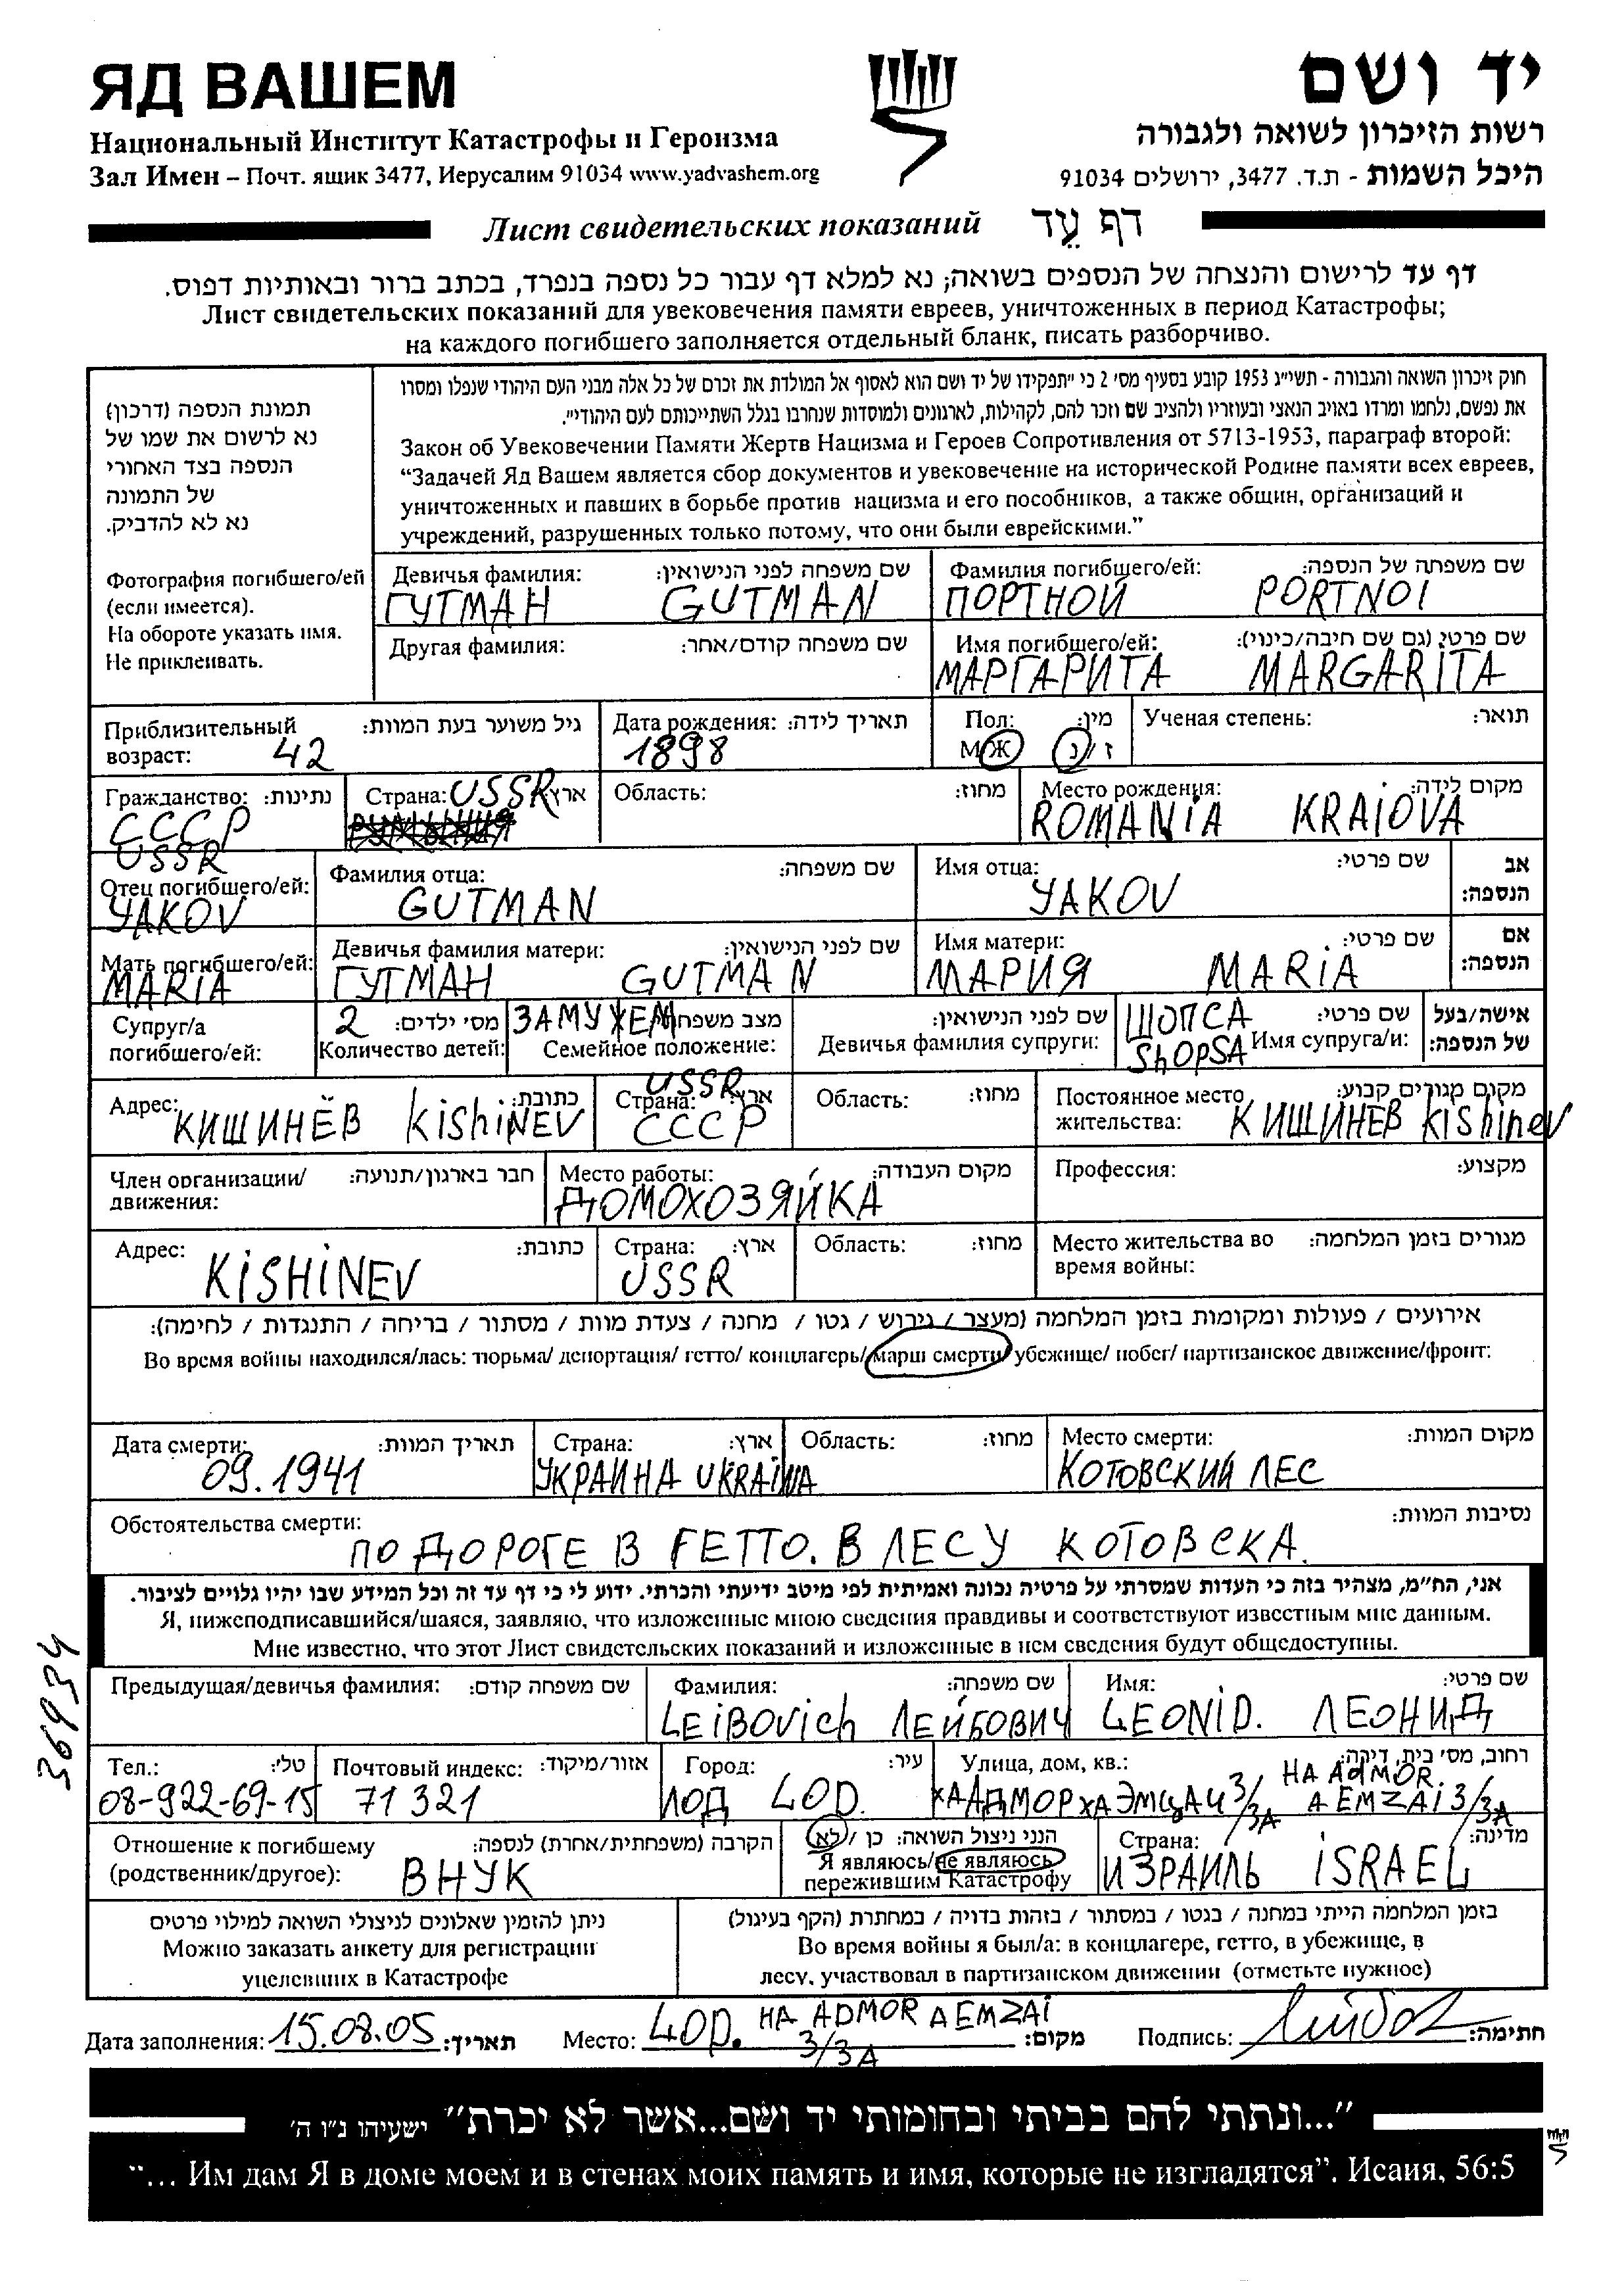 ЯД ВАШЕМ
יד ושם
Национальный Институт Катастрофы и Героизма
רשות הזיכרון לשואה ולגבורה
Зал Имен – Почт. ящик 3477, Иерусалим 91034 www.yadvashem.org
היכל השמות - ת.ד. 3477, ירושלים 91034
Лист свидетельских показаний דף עֵד
דף עד לרישום והנצחה של הנספים בשואה; נא למלא דף עבור כל נספה בנפרד, בכתב ברור ובאותיות דפוס.
Лист свидетельских показаний для увековечения памяти евреев, уничтоженных в период Катастрофы;
на каждого погибшего заполняется отдельный бланк, писать разборчиво.
תמונת הנספה (דרכון)
נא לרשום את שמו של
הנספה בצד האחורי
של התמונה
נא לא להדביק.
Фотография погибшего/ей
(если имеется).
На обороте указать имя.
Не приклеивать.
חוק זיכרון השואה והגבורה - תשי״ג 1953 קובע בסעיף מס׳ 2 כי ״תפקידו של יד ושם הוא לאסוף אל המולדת את זכרם של כל אלה מבני העם היהודי שנפלו ומסרו
את נפשם, נלחמו ומרדו באויב הנאצי ובעוזריו ולהציב שם וזכר להם, לקהילות, לארגונים ולמוסדות שנחרבו בגלל השתייכותם לעם היהודי״.
Закон об Увековечении Памяти Жертв Нацизма и Героев Сопротивления от 5713-1953, параграф второй:
“Задачей Яд Вашем является сбор документов и увековечение на исторической Родине памяти всех евреев,
уничтоженных и павших в борьбе против нацизма и его пособников, а также общин, организаций и
учреждений, разрушенных только потому, что они были еврейскими.”
Девичья фамилия: שם משפחה לפני הנישואין:
ГУТМАН GUTMAN
Фамилия погибшего/ей: שם משפחה של הנספה:
ПОРТНОЙ PORTNOI
Другая фамилия: שם משפחה קודם/אחר:
Имя погибшего/ей: שם פרטי (גם שם חיבה/כינוי):
МАРГАРИТА MARGARITA
Приблизительный возраст: 42 גיל משוער בעת המוות:
Дата рождения: תאריך לידה:
1898
Пол: מין:
М/Ж ז / נ
Ученая степень: תואר:
Гражданство: נתינות:
СССР
USSR
Страна: USSR ארץ:
Область: מחוז:
Место рождения: מקום לידה:
ROMANIA KRAIOVA
Отец погибшего/ей:
YAKOV
Фамилия отца: שם משפחה:
GUTMAN
Имя отца: שם פרטי:
YAKOV
אב
הנספה:
Мать погибшего/ей:
MARIA
Девичья фамилия матери: שם לפני הנישואין:
ГУТМАН GUTMAN
Имя матери: שם פרטי:
МАРИЯ MARIA
אם
הנספה:
Супруг/а
погибшего/ей:
2 מס׳ ילדים:
Количество детей:
ЗАМУЖЕМ מצב משפחתי:
Семейное положение:
שם לפני הנישואין:
Девичья фамилия супруги:
ШОПСА שם פרטי:
SHOPSA Имя супруга/и:
אישה/בעל
של הנספה:
Адрес: כתובת:
КИШИНЁВ KISHINEV
USSR
Страна: ארץ:
СССР
Область: מחוז:
Постоянное место жительства: מקום מגורים קבוע:
КИШИНЕВ KISHINEV
Член организации/ движения: חבר בארגון/תנועה:
Место работы: מקום העבודה:
ДОМОХОЗЯЙКА
Профессия: מקצוע:
Адрес: כתובת:
KISHINEV
Страна: ארץ:
USSR
Область: מחוז:
Место жительства во время войны: מגורים בזמן המלחמה:
אירועים / פעולות ומקומות בזמן המלחמה (מעצר / גירוש / גטו / מחנה / צעדת מוות / מסתור / בריחה / התנגדות / לחימה):
Во время войны находился/лась: тюрьма/ депортация/ гетто/ концлагерь/ марш смерти/ убежище/ побег/ партизанское движение/фронт:
Дата смерти: תאריך המוות:
09.1941
Страна: ארץ:
УКРАИНА UKRAINA
Область: מחוז:
Место смерти: מקום המוות:
КОТОВСКИЙ ЛЕС
Обстоятельства смерти: נסיבות המוות:
ПО ДОРОГЕ В ГЕТТО. В ЛЕСУ КОТОВСКА.
אני, הח״מ, מצהיר בזה כי העדות שמסרתי על פרטיה נכונה ואמיתית לפי מיטב ידיעתי והכרתי. ידוע לי כי דף עד זה וכל המידע שבו יהיו גלויים לציבור.
Я, нижеподписавшийся/шаяся, заявляю, что изложенные мною сведения правдивы и соответствуют известным мне данным.
Мне известно, что этот Лист свидетельских показаний и изложенные в нем сведения будут общедоступны.
36934
Предыдущая/девичья фамилия: שם משפחה קודם:
Фамилия: שם משפחה:
LEIBOVICH ЛЕЙБОВИЧ
Имя: שם פרטי:
LEONID. ЛЕОНИД
Тел.: טל׳:
08-922-69-15
Почтовый индекс: אזור/מיקוד:
71321
Город: עיר:
ЛОД LOD.
Улица, дом, кв.: רחוב, מס׳ בית, דירה:
ХААДМОР ХАЭМЦАИ 3/3А HA ADMOR A EMZAI 3/3A
Отношение к погибшему הקרבה (משפחתית/אחרת) לנספה:
(родственник/другое): ВНУК
הנני ניצול השואה: כן / לא
Я являюсь/не являюсь
пережившим Катастрофу
Страна: מדינה:
ИЗРАИЛЬ ISRAEL
ניתן להזמין שאלונים לניצולי השואה למילוי פרטים
Можно заказать анкету для регистрации
уцелевших в Катастрофе
בזמן המלחמה הייתי במחנה / בגטו / במסתור / בזהות בדויה / במחתרת (הקף בעיגול)
Во время войны я был/а: в концлагере, гетто, в убежище, в
лесу, участвовал в партизанском движении (отметьте нужное)
Дата заполнения: 15.08.05 תאריך: Место: LOD. HA ADMOR A EMZAI 3/3A מקום: Подпись: חתימה:
״...ונתתי להם בביתי ובחומותי יד ושם...אשר לא יכרת״ ישעיהו נ״ו ה׳
“... Им дам Я в доме моем и в стенах моих память и имя, которые не изгладятся”. Исаия, 56:5